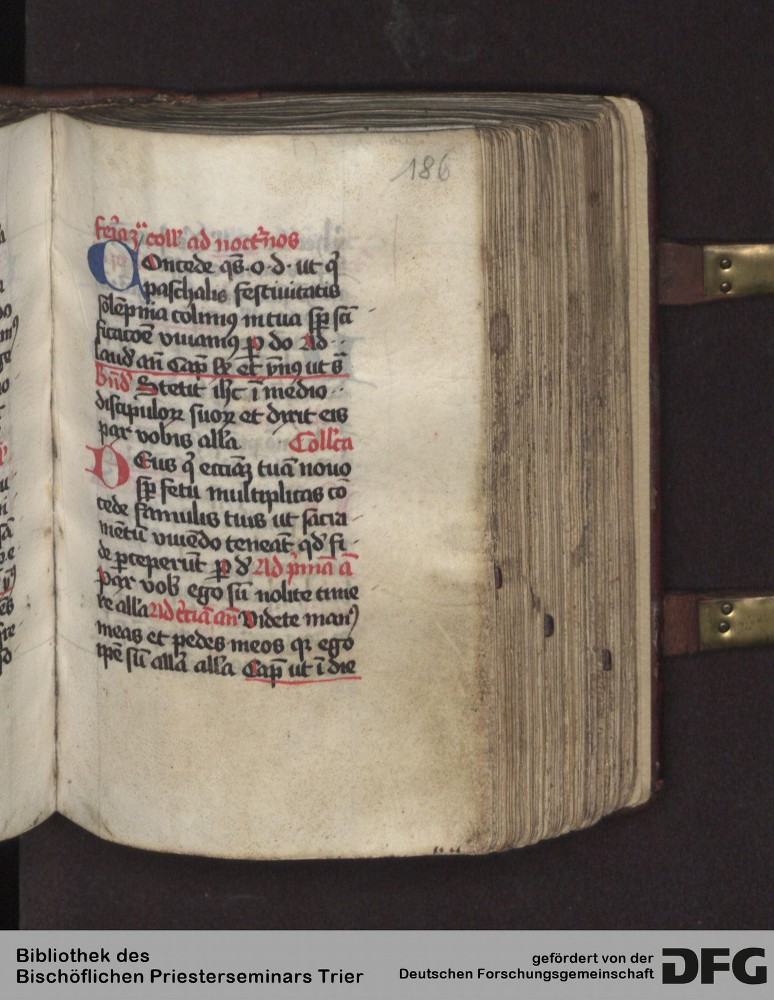 186
feria iij coll' ad noct'nos
Concede q̄s. o. d. ut q'
paschalis festiuitatis
solēpnia colimꝰ in tua sp̄ sc̄i
ficatōe viuamꝰ p̱ do Ad
laud' an̄ Cap̄ et ymꝰ ut s̄
Bn̄d' Stetit ih̄c ī medio
discipuloꝝ suoꝝ et dixit eis
pax vobis all'a Coll'ca
Deus q' eccīaꝫ tuā nouo
sp̄ fetu multiplicas cō
cede famulis tuis ut sacra
mētū viuēdo teneāt qd' fi
de p̱ceperūt p̱ d' Ad p'mā ā
Pax vob' ego sū nolite time
re all'a Ad t'ciā an̄ Videte manꝰ
meas et pedes meos q' ego
ip̄e sū all'a all'a Cap̄ ut ī die
Bibliothek des
Bischöflichen Priesterseminars Trier
gefördert von der
Deutschen Forschungsgemeinschaft
DFG